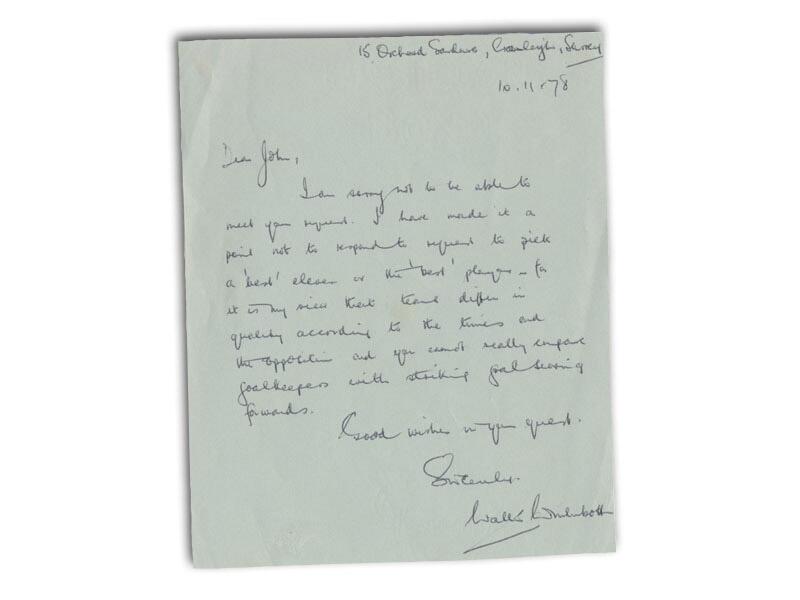 15, Orchard Gardens, Cranleigh, Surrey
10.11.78
Dear John,
I am sorry not to be able to
meet your request. I have made it a
point not to respond to request to pick
a 'best' eleven or the 'best' players – for
it is my view that teams differ in
quality according to the times and
the opposition and you cannot really compare
goalkeepers with striking goal scoring
forwards.
Good wishes in your quest.
Sincerely.
Walter Winterbottom